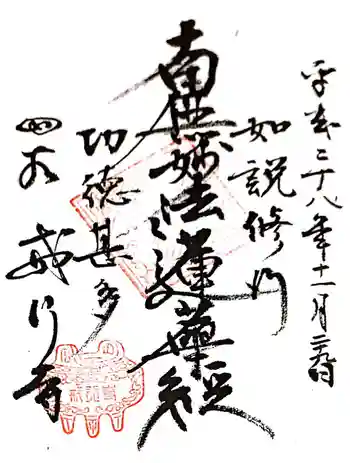 平成二十八年十一月二九日
如説修行
南無妙法蓮華経
功徳甚多
戒行寺